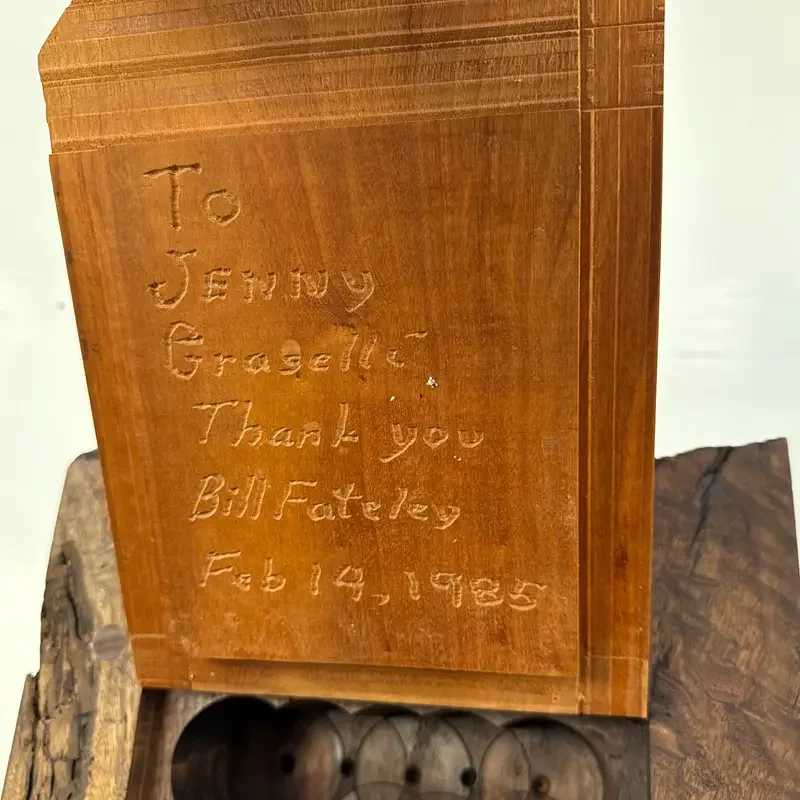 To
JENNY
Graselli
Thank you
Bill Fateley
Feb 14, 1985